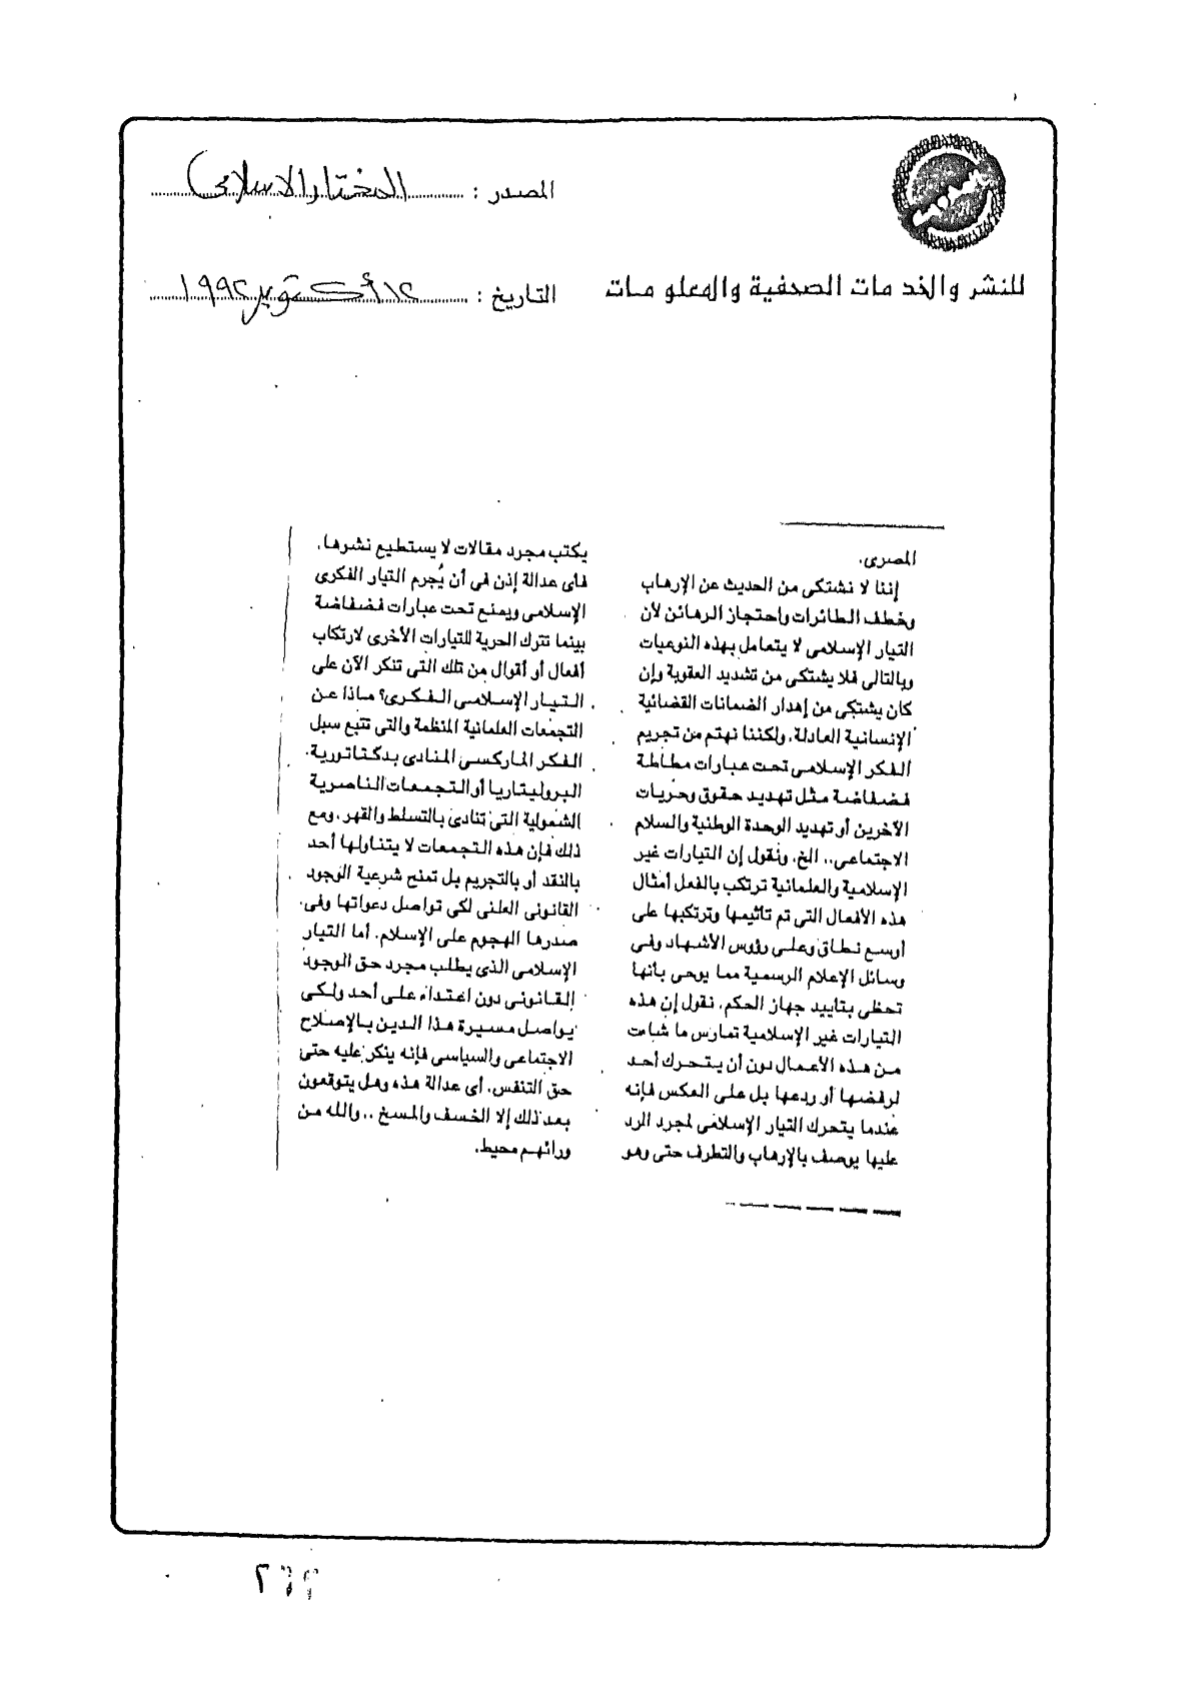 المصدر : المختار الاسلامى
للنشر والخدمات الصحفية والمعلومات
التاريخ : ١٢ أكتوبر ١٩٩٢
المصرى.
إننا لا نشتكى من الحديث عن الإرهاب
وخطف الطائرات واحتجاز الرهائن لأن
التيار الإسلامى لا يتعامل بهذه النوعيات
وبالتالى فلا يشتكى من تشديد العقوبة وإن
كان يشتكى من إهدار الضمانات القضائية
الإنسانية العادلة. ولكننا نهتم من تجريم
الفكر الإسلامى تحت عبارات مطاطة
فضفاضة مثل تهديد حقوق وحريات
الآخرين أو تهديد الوحدة الوطنية والسلام
الاجتماعى.. الخ. ونقول إن التيارات غير
الإسلامية والعلمانية ترتكب بالفعل أمثال
هذه الأفعال التى تم تأثيمها وترتكبها على
أوسع نطاق وعلى رؤوس الأشهاد وفى
وسائل الإعلام الرسمية مما يوحى بأنها
تحظى بتأييد جهاز الحكم. نقول إن هذه
التيارات غير الإسلامية تمارس ما شاءت
من هذه الأعمال دون أن يتحرك أحد
لرفضها أو ردعها بل على العكس فإنه
عندما يتحرك التيار الإسلامى لمجرد الرد
عليها يوصف بالإرهاب والتطرف حتى وهو
يكتب مجرد مقالات لا يستطيع نشرها.
فأى عدالة إذن فى أن يُجرم التيار الفكرى
الإسلامى ويمنع تحت عبارات فضفاضة
بينما تترك الحرية للتيارات الأخرى لارتكاب
أفعال أو أقوال من تلك التى تنكر الآن على
التيار الإسلامى الفكرى؟ ماذا عن
التجمعات العلمانية المنظمة والتى تتبع سبل
الفكر الماركسى المنادى بدكتاتورية
البروليتاريا أو التجمعات الناصرية
الشمولية التى تنادى بالتسلط والقهر. ومع
ذلك فإن هذه التجمعات لا يتناولها أحد
بالنقد أو بالتجريم بل تمنح شرعية الوجود
القانونى العلنى لكى تواصل دعواتها وفى
صدرها الهجوم على الإسلام. أما التيار
الإسلامى الذى يطلب مجرد حق الوجود
القانونى دون اعتداء على أحد ولكى
يواصل مسيرة هذا الدين بالإصلاح
الاجتماعى والسياسى فإنه ينكر عليه حتى
حق التنفس. أى عدالة هذه وهل يتوقعون
بعد ذلك إلا الخسف والمسخ .. والله من
ورائهم محيط.